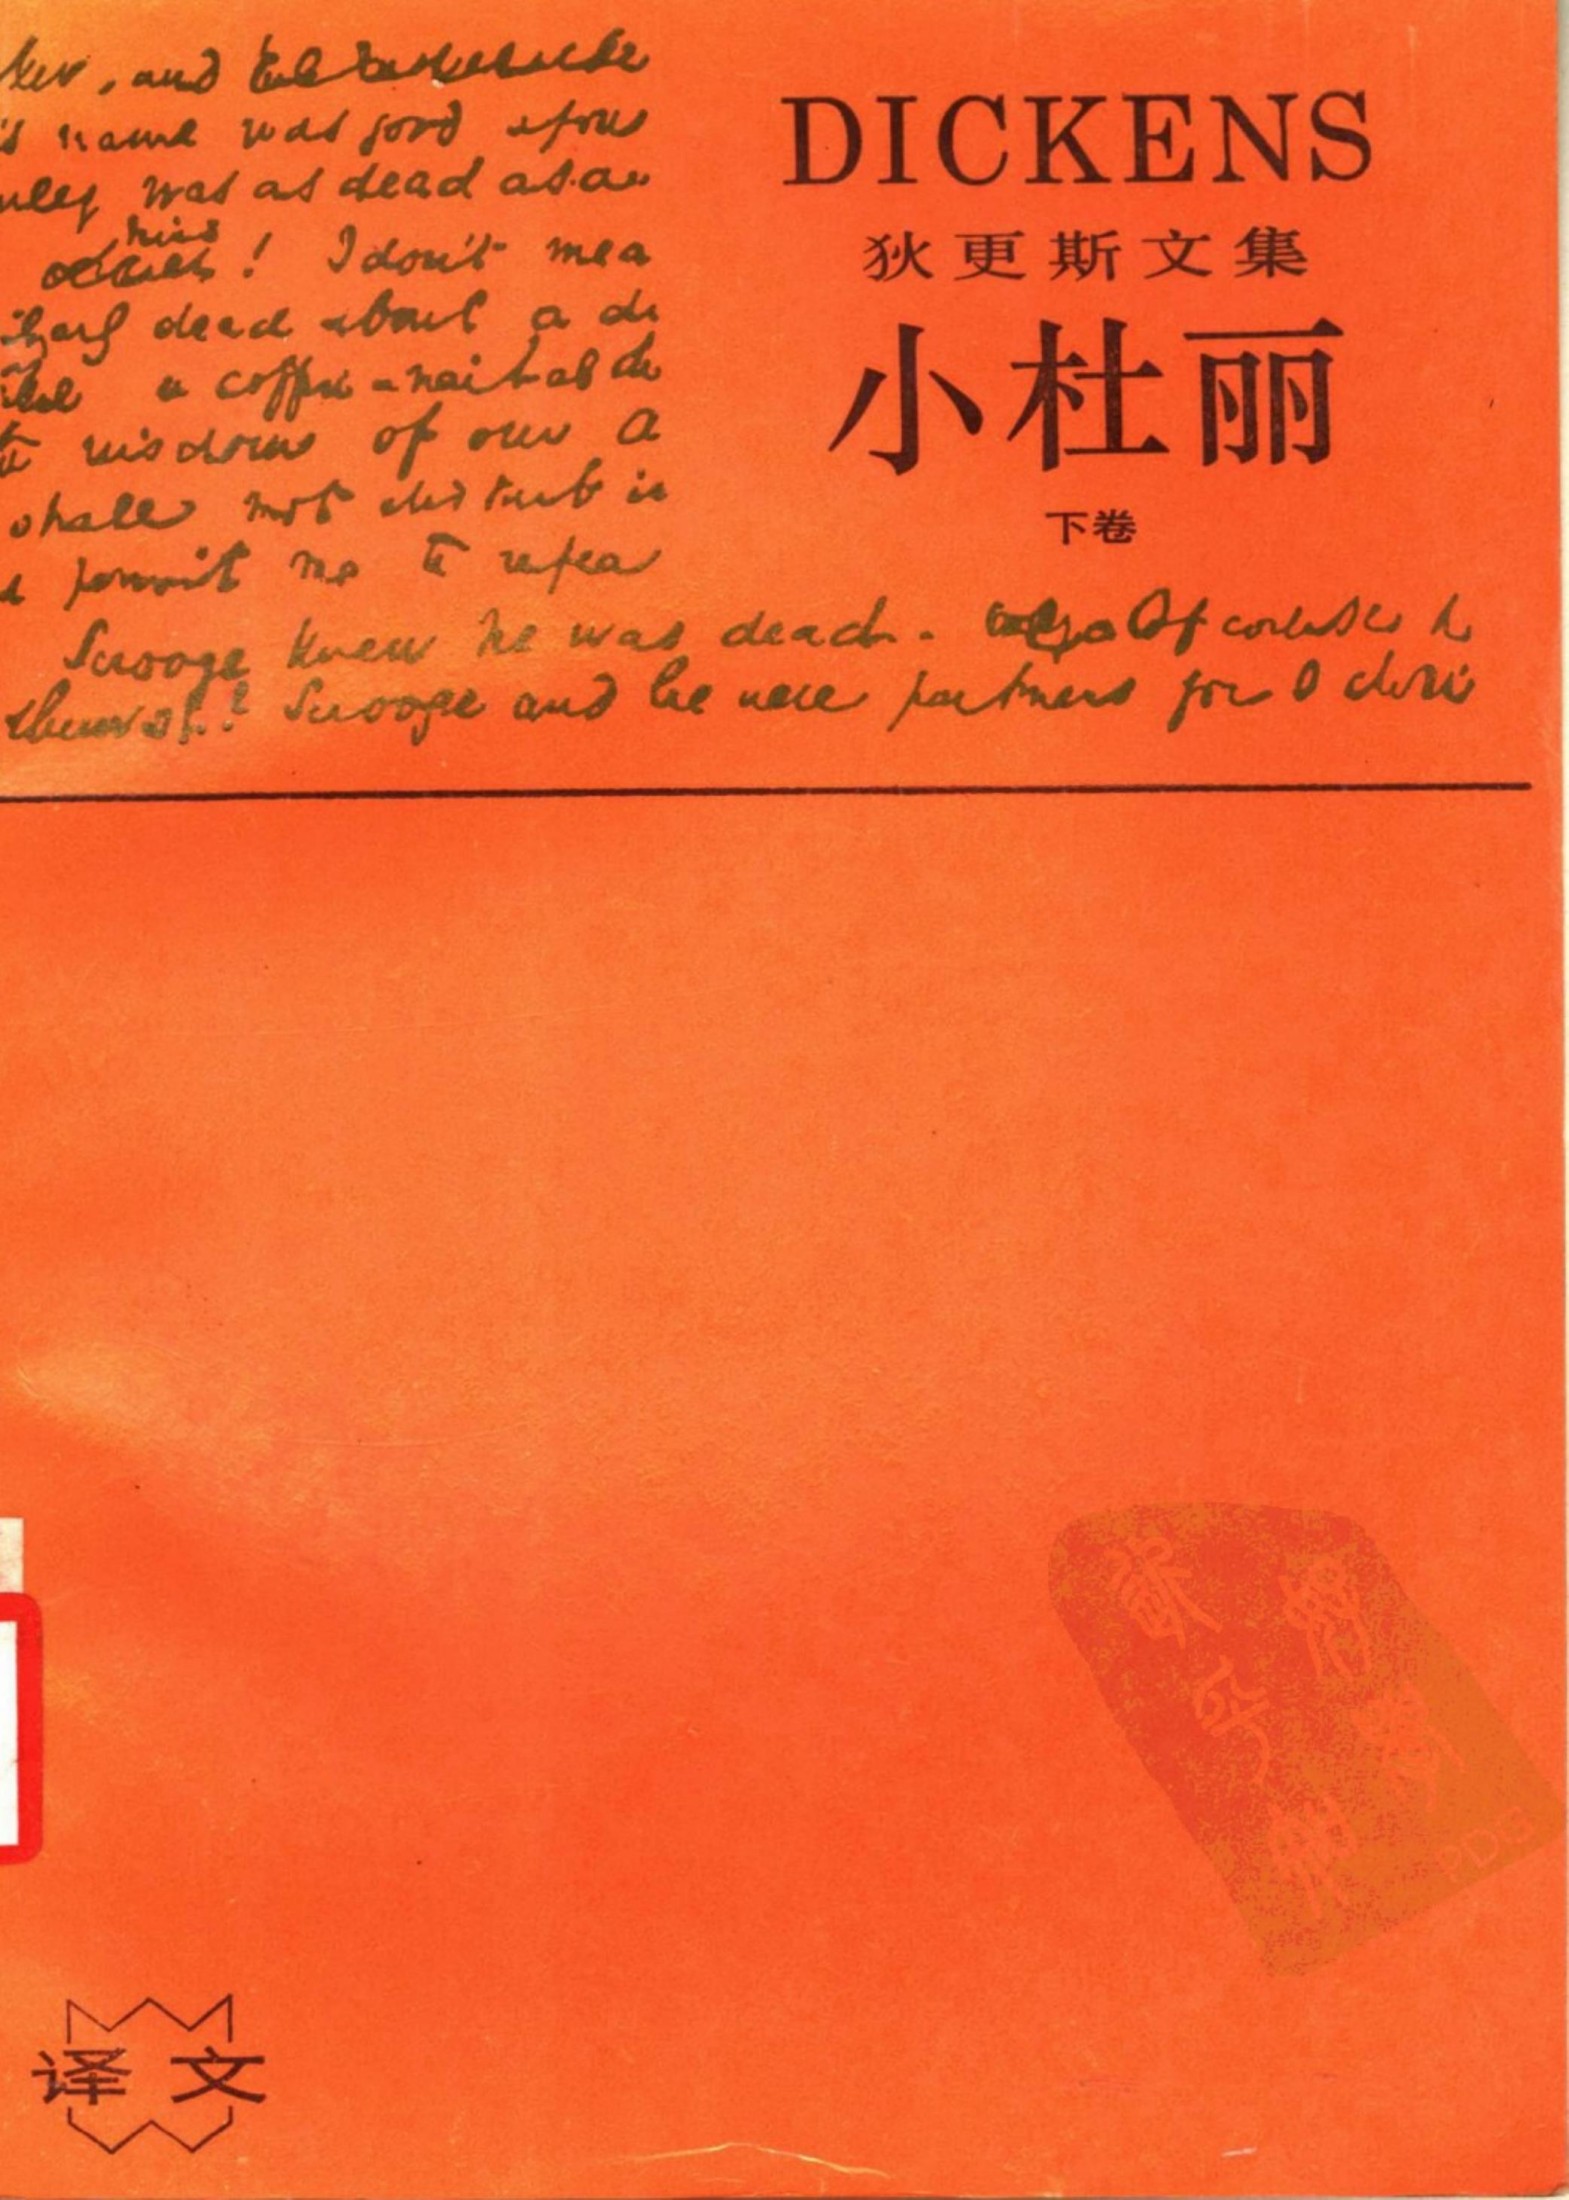 DICKENS
狄更斯文集
小杜丽
下卷
, and
name was good
was as dead as a
his
! I don't mea
dead about a
a coffin-nail as the
wisdom of our A
shall not disturb i
permit me to repea
Scrooge knew he was dead. Of course h
Scrooge and he were partners for I don't
译文
PDG